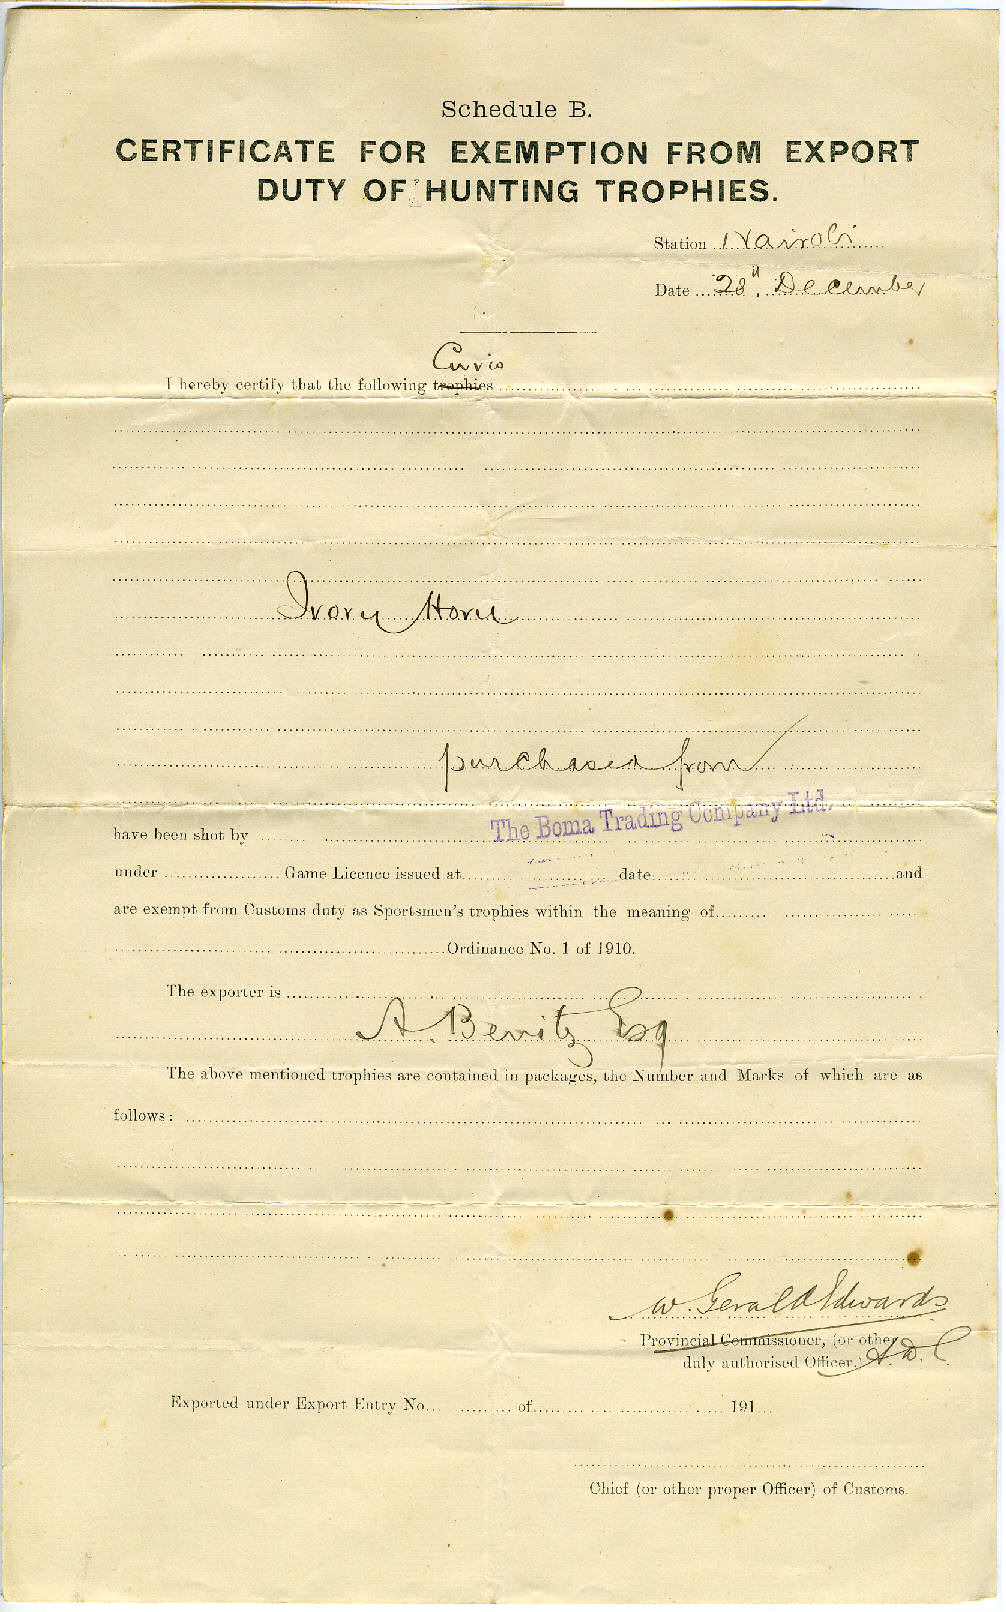 Schedule B.
CERTIFICATE FOR EXEMPTION FROM EXPORT
DUTY OF HUNTING TROPHIES.
Station Nairobi
Date 28th December
Curio
I hereby certify that the following trophies
Ivory Horn
purchased from
The Boma Trading Company Ltd.
have been shot by
under Game Licence issued at date and
are exempt from Customs duty as Sportsmen's trophies within the meaning of
Ordinance No. 1 of 1910.
The exporter is
A. Benitz Esq
The above mentioned trophies are contained in packages, the Number and Marks of which are as
follows:
W. Gerald Edwards
Provincial Commissioner, (or other
duly authorised Officer.) A.D.C
Exported under Export Entry No. of 191
Chief (or other proper Officer) of Customs.